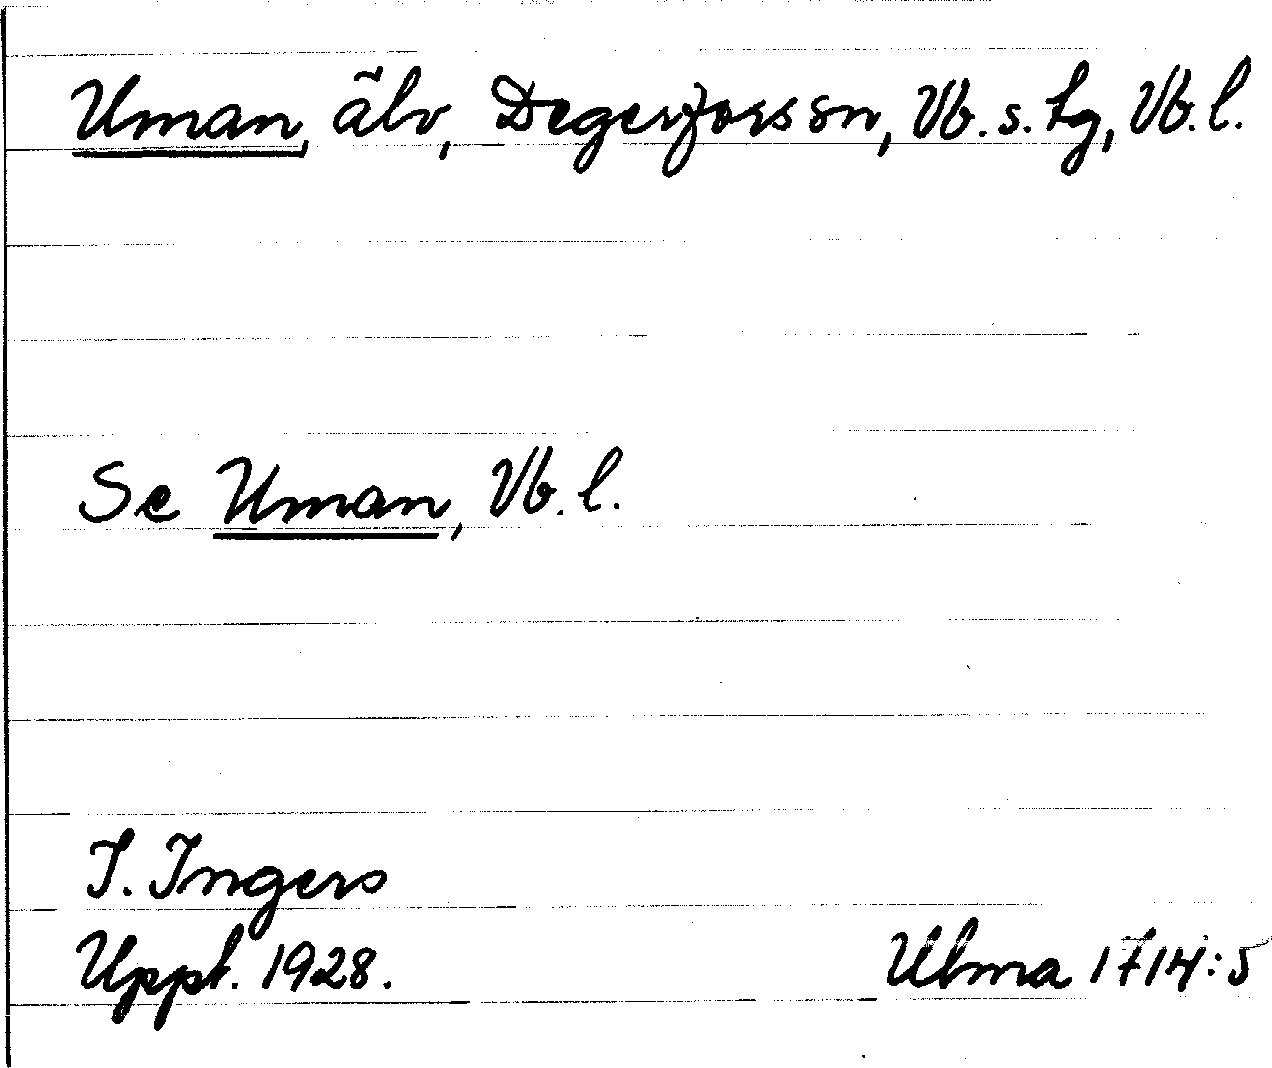 Uman, älv, Degerfors sn, Vb. s. tg, Vb. l.
Se Uman, Vb. l.
I. Ingers
Uppt. 1928.
Ulma 1714:5